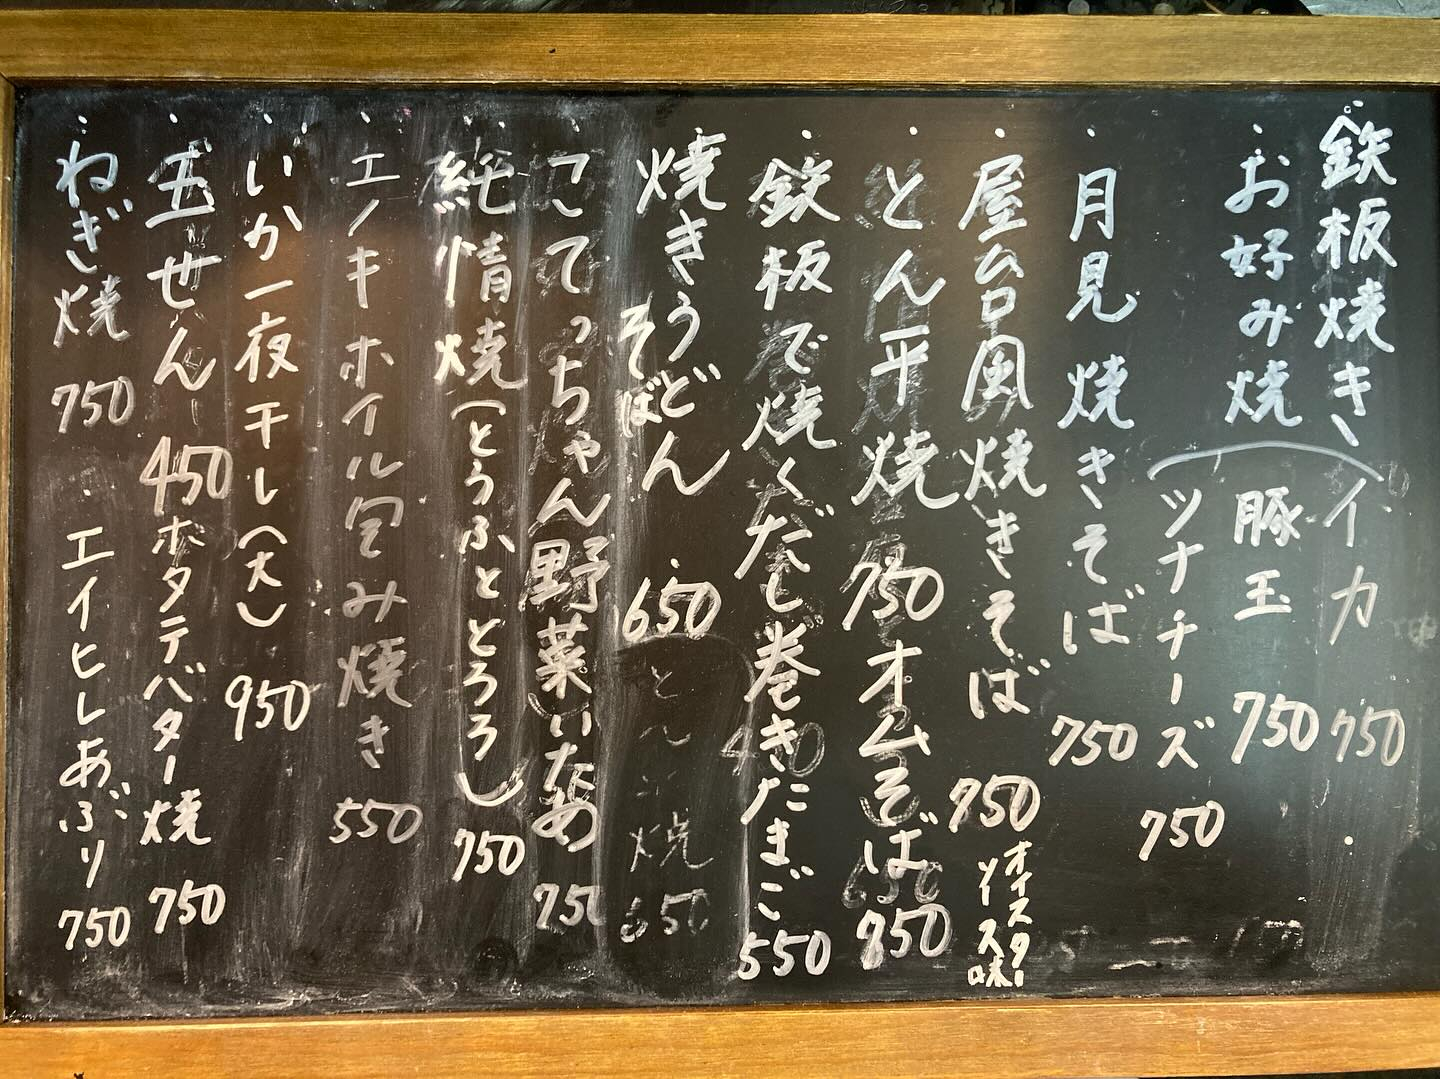 鉄板焼き
・お好み焼(イカ 750
豚玉 750
ツナチーズ 750
・月見焼きそば 750
・屋台風焼きそば 750 オイスターソース味
・とん平焼 750 オムそば 850
・鉄板で焼くだし巻きたまご 550
・焼きうどん 650
そば
・こてっちゃん野菜いため 750
・純情焼(とうふととろろ) 750
・エノキホイル包み焼き 550
・いか一夜干し(大) 950
・玉せん 450 ホタテバター焼 750
・ねぎ焼 750 ・エイヒレあぶり 750